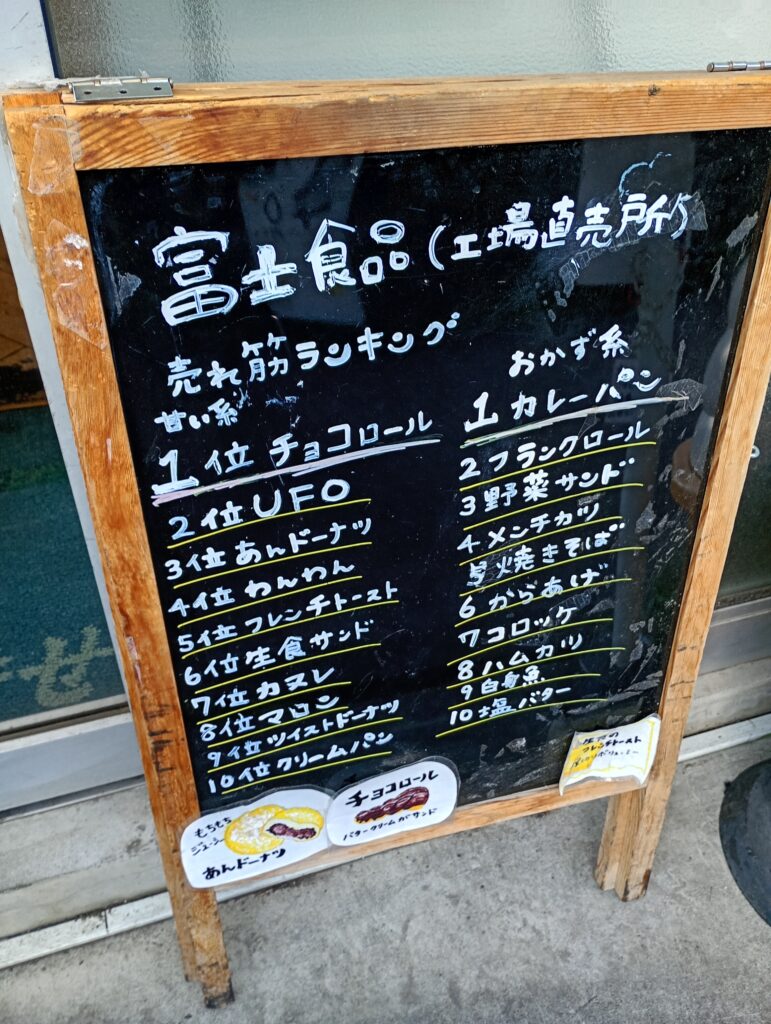 富士食品(工場直売所)
売れ筋ランキング
甘い系
1位 チョコロール
2位 UFO
3位 あんドーナツ
4位 わんわん
5位 フレンチトースト
6位 生食サンド
7位 カヌレ
8位 マロン
9位 ツイストドーナツ
10位 クリームパン
おかず系
1 カレーパン
2 フランクロール
3 野菜サンド
4 メンチカツ
5 焼きそば
6 からあげ
7 コロッケ
8 ハムカツ
9 白身魚
10 塩バター
もちもち
ジューシー
あんドーナツ
チョコロール
バタークリームがサンド
フレンチトースト